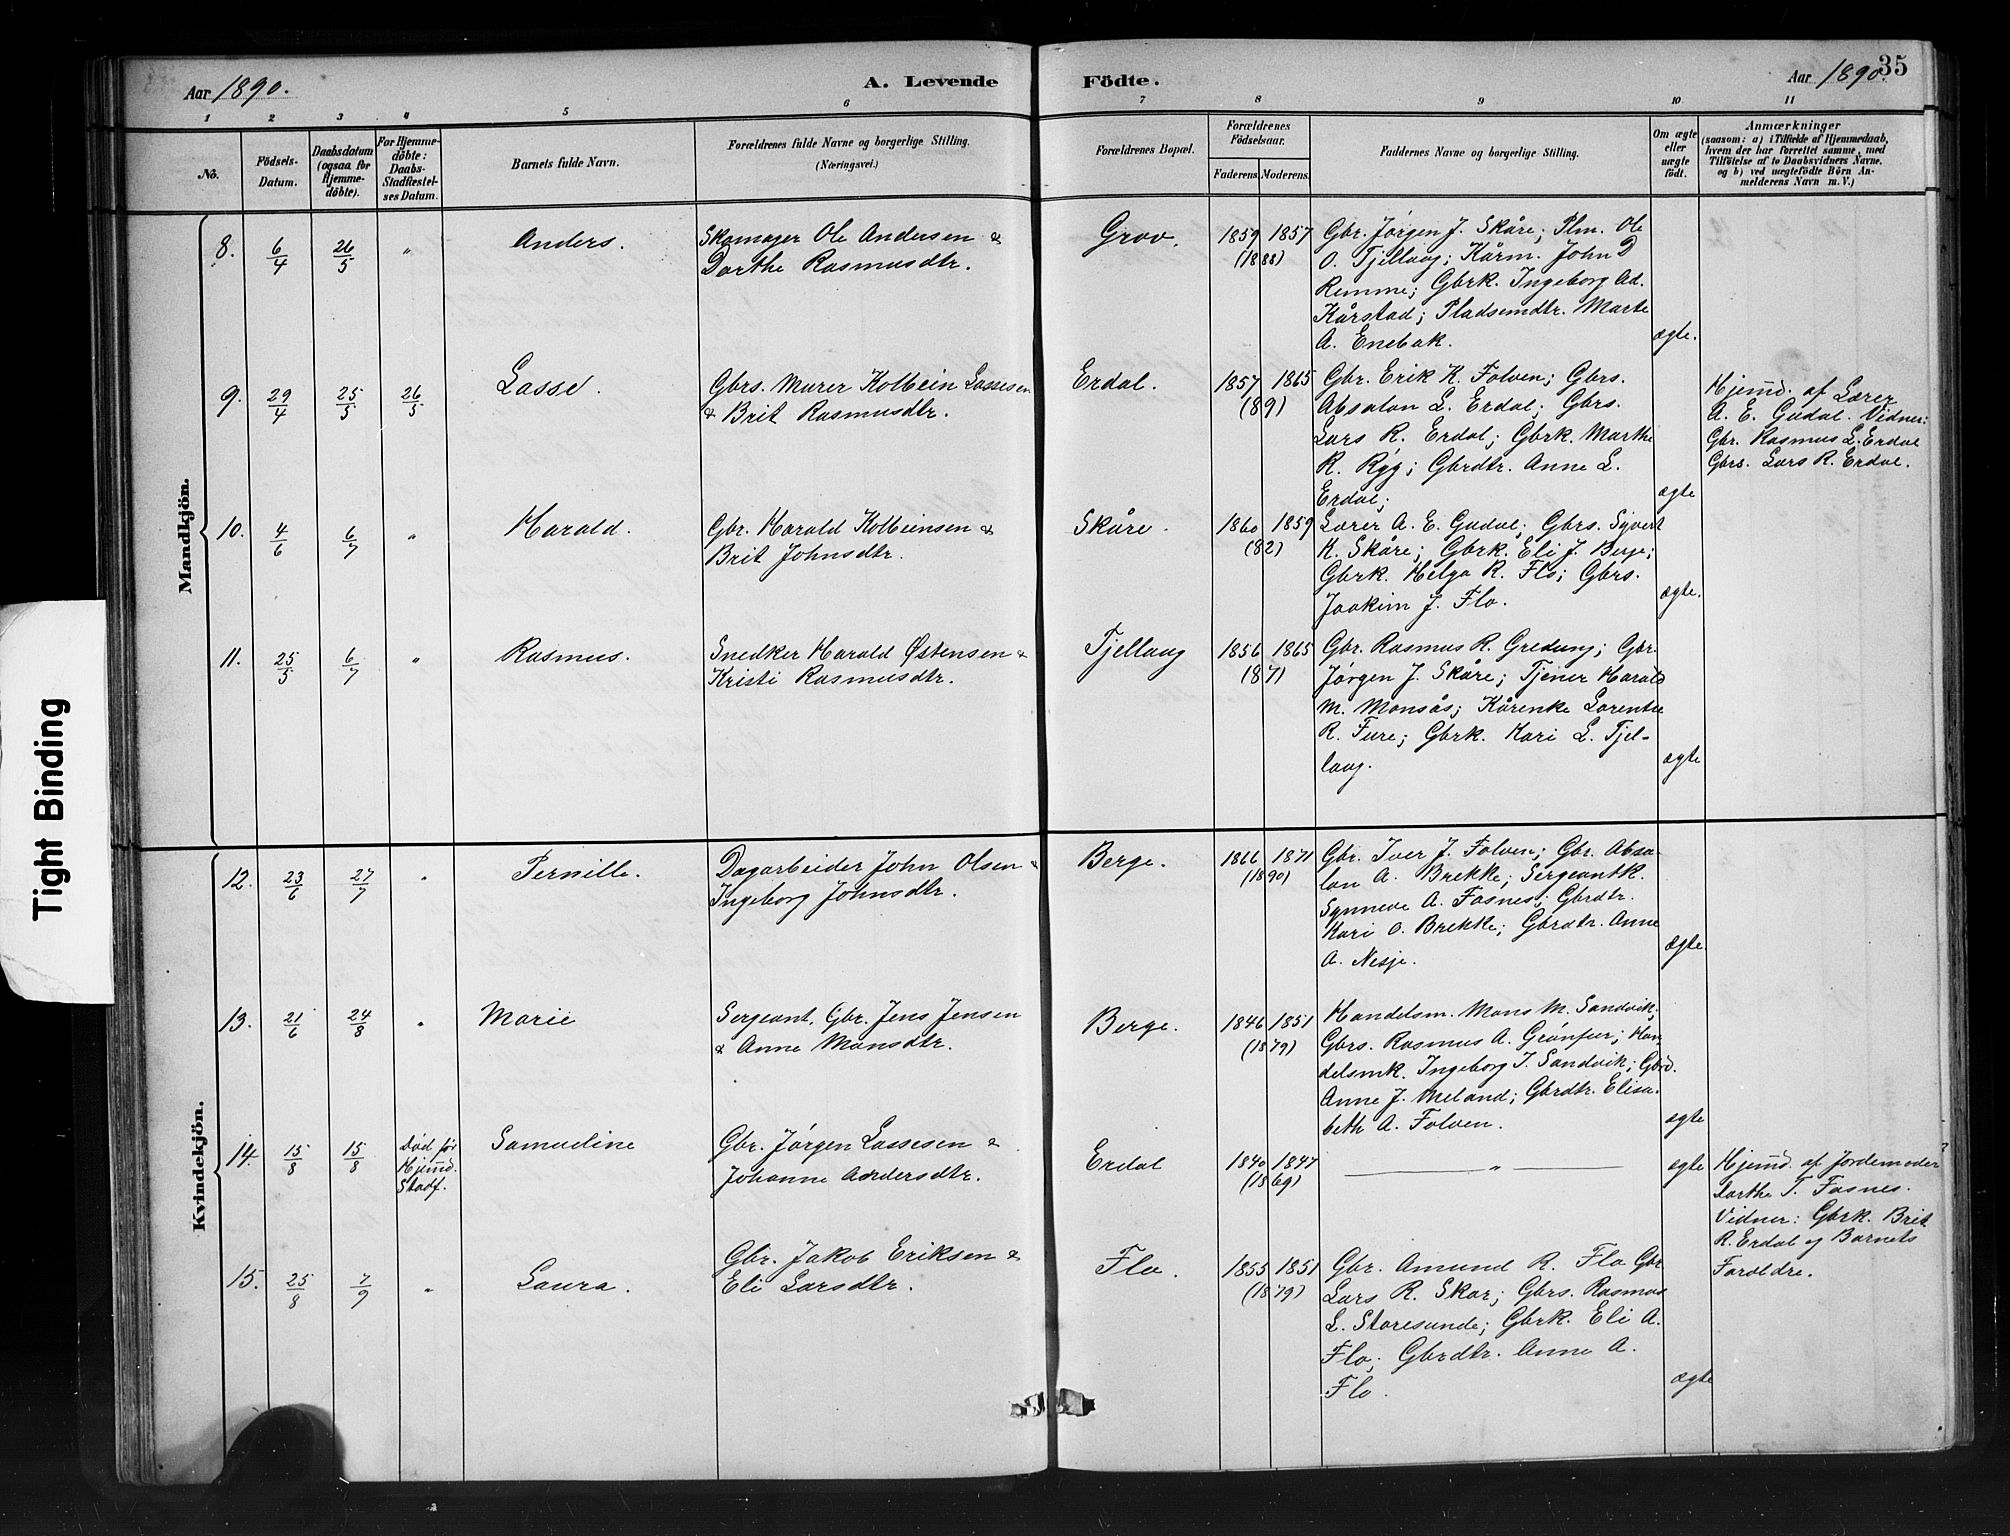 35
Aar 1890.
A. Levende Födte.
Aar 1890.
1 2 3 4 5 6 7 8 9 10 11
No.
Födsels-
Datum.
Daabsdatum
(ogsaa for
Hjemme-
döbte).
For Hjemme-
döbte:
Daabs-
Stadfæstel-
ses Datum.
Barnets fulde Navn.
Forældrenes fulde Navne og borgerlige Stilling.
(Næringsvei.)
Forældrenes Bopæl.
Forældrenes
Födselsaar.
Faderens. Moderens.
Faddernes Navne og borgerlige Stilling.
Om ægte
eller
uægte
født.
Anmærkninger
(saasom: a) i Tilfælde af Hjemmedaab,
hvem der har forrettet samme, med
Tilföielse af to Daabsvidners Navne.
og b) ved uægtefödte Börn An-
melderens Navn m. V.)
Mandkjön.
8. 6/4 26/5 " Anders.
Skomager Ole Andersen &
Dorthe Rasmusdtr.
Grov.
1859 1857
(1888)
Gbr. Jørgen J. Skåre; Plm. Ole
O. Tjellaug; Kårm. John D
Remme; Gbrk. Ingeborg Ad.
Kårstad; Pladsemdtr. Marte
A. Enebak.
ægte.
9. 29/4 25/5 26/5 Lasse.
Gbrs. Murer Kolbein Lassesen
& Brit Rasmusdtr.
Erdal.
1857 1865
(89)
Gbr. Erik K. Folven; Gbrs.
Absalon L. Erdal; Gbrs.
Lars R. Erdal; Gbrk. Marthe
R. Ryg; Gbrdtr. Anne L.
Erdal;
ægte
Hjemd. af Lærer
A. E. Gudal. Vidner:
Gbr. Rasmus L. Erdal
Gbrs. Lars R. Erdal.
10. 4/6 6/7 " Harald.
Gbr. Harald Kolbeinsen &
Brit Johnsdtr.
Skåre.
1860 1859
(82)
Lærer A. E. Gudal; Gbrs. Syvert
K. Skåre; Gbrk. Eli J. Berge;
Gbrk. Helga R. Flo; Gbrs.
Joakim J. Flo.
ægte.
11. 25/5 6/7 " Rasmus.
Snedker Harald Østensen &
Kristi Rasmusdtr.
Tjellaug
1856 1865
(87)
Gbr. Rasmus R. Gredung; Gbr.
Jørgen J. Skåre; Tjener Harald
M. Monsås; Kårenke Lorentse
R. Fure; Gbrk. Kari L. Tjel-
laug.
ægte
Kvindekjön.
12. 23/6 27/7 " Pernille.
Dagarbeider John Olsen &
Ingeborg Johnsdtr.
Berge.
1866 1871
(1890)
Gbr. Iver J. Folven; Gbr. Absa-
lon A. Brekke; Sergeantk.
Synneve A. Fosnes; Gbrdtr.
Kari O. Brekke; Gbrdtr. Anne
A. Nesje.
ægte.
13. 21/6 24/8 " Marie
Sergeant, Gbr. Jens Jensen
& Anne Monsdtr.
Berge.
1846 1851
(1879)
Handelsm. Mons M. Sandvik;
Gbrs. Rasmus A. Grønfur; Han-
delsmk. Ingeborg J. Sandvik; Gbrd.
Anne J. Meland; Gbrdtr. Elisa-
beth A. Folven.
ægte
14. 15/8 15/8
Död før
Hjemd.
Stadf.
Samueline
Gbr. Jørgen Lassesen &
Johanne Andersdtr.
Erdal
1840 1847
(1869)
"
ægte
Hjemd. af Jordemoder
Dorthe T. Fosnes.
Vidner: Gbrk. Brit
R. Erdal og Barnets
Foroldre.
15. 25/8 7/9 " Laura.
Gbr. Jakob Eriksen &
Eli Larsdtr.
Flo.
1855 1851
(1879)
Gbr. Amund R. Flo Gbr
Lars R. Skar; Gbrs. Rasmus
L. Storesunde; Gbrk. Eli A.
Flo; Gbrdtr. Anne A.
Flo.
ægte
Tight Binding